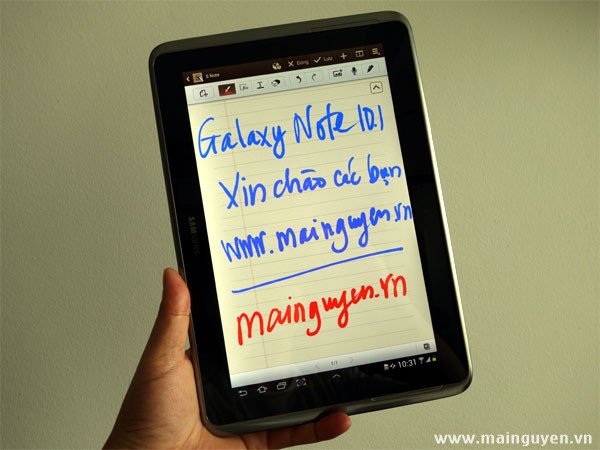 S Note
Đóng
Lưu
Galaxy Note 10.1
Xin chào các bạn
www.mainguyen.vn
mainguyen.vn
1/1
10:31
SAMSUNG
www.mainguyen.vn